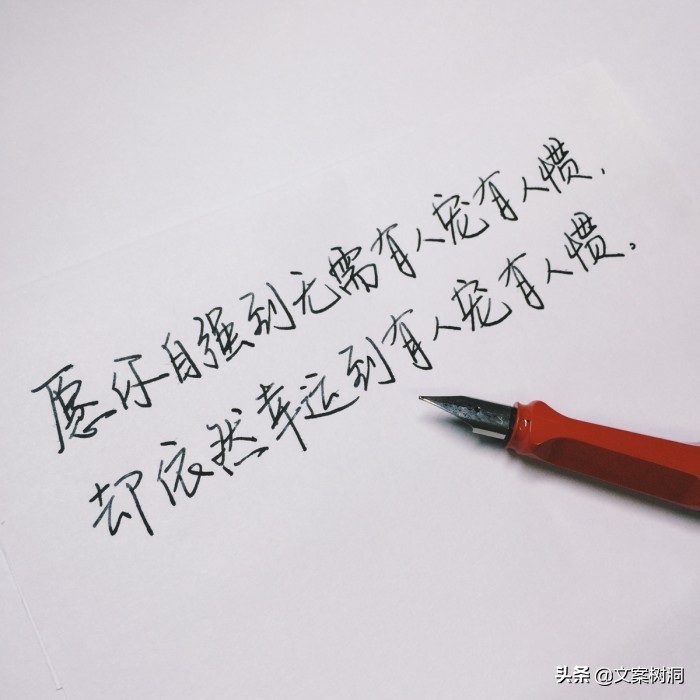 愿你自强到无需有人宠有人惯，
却依然幸运到有人宠有人惯。
头条 @文案树洞